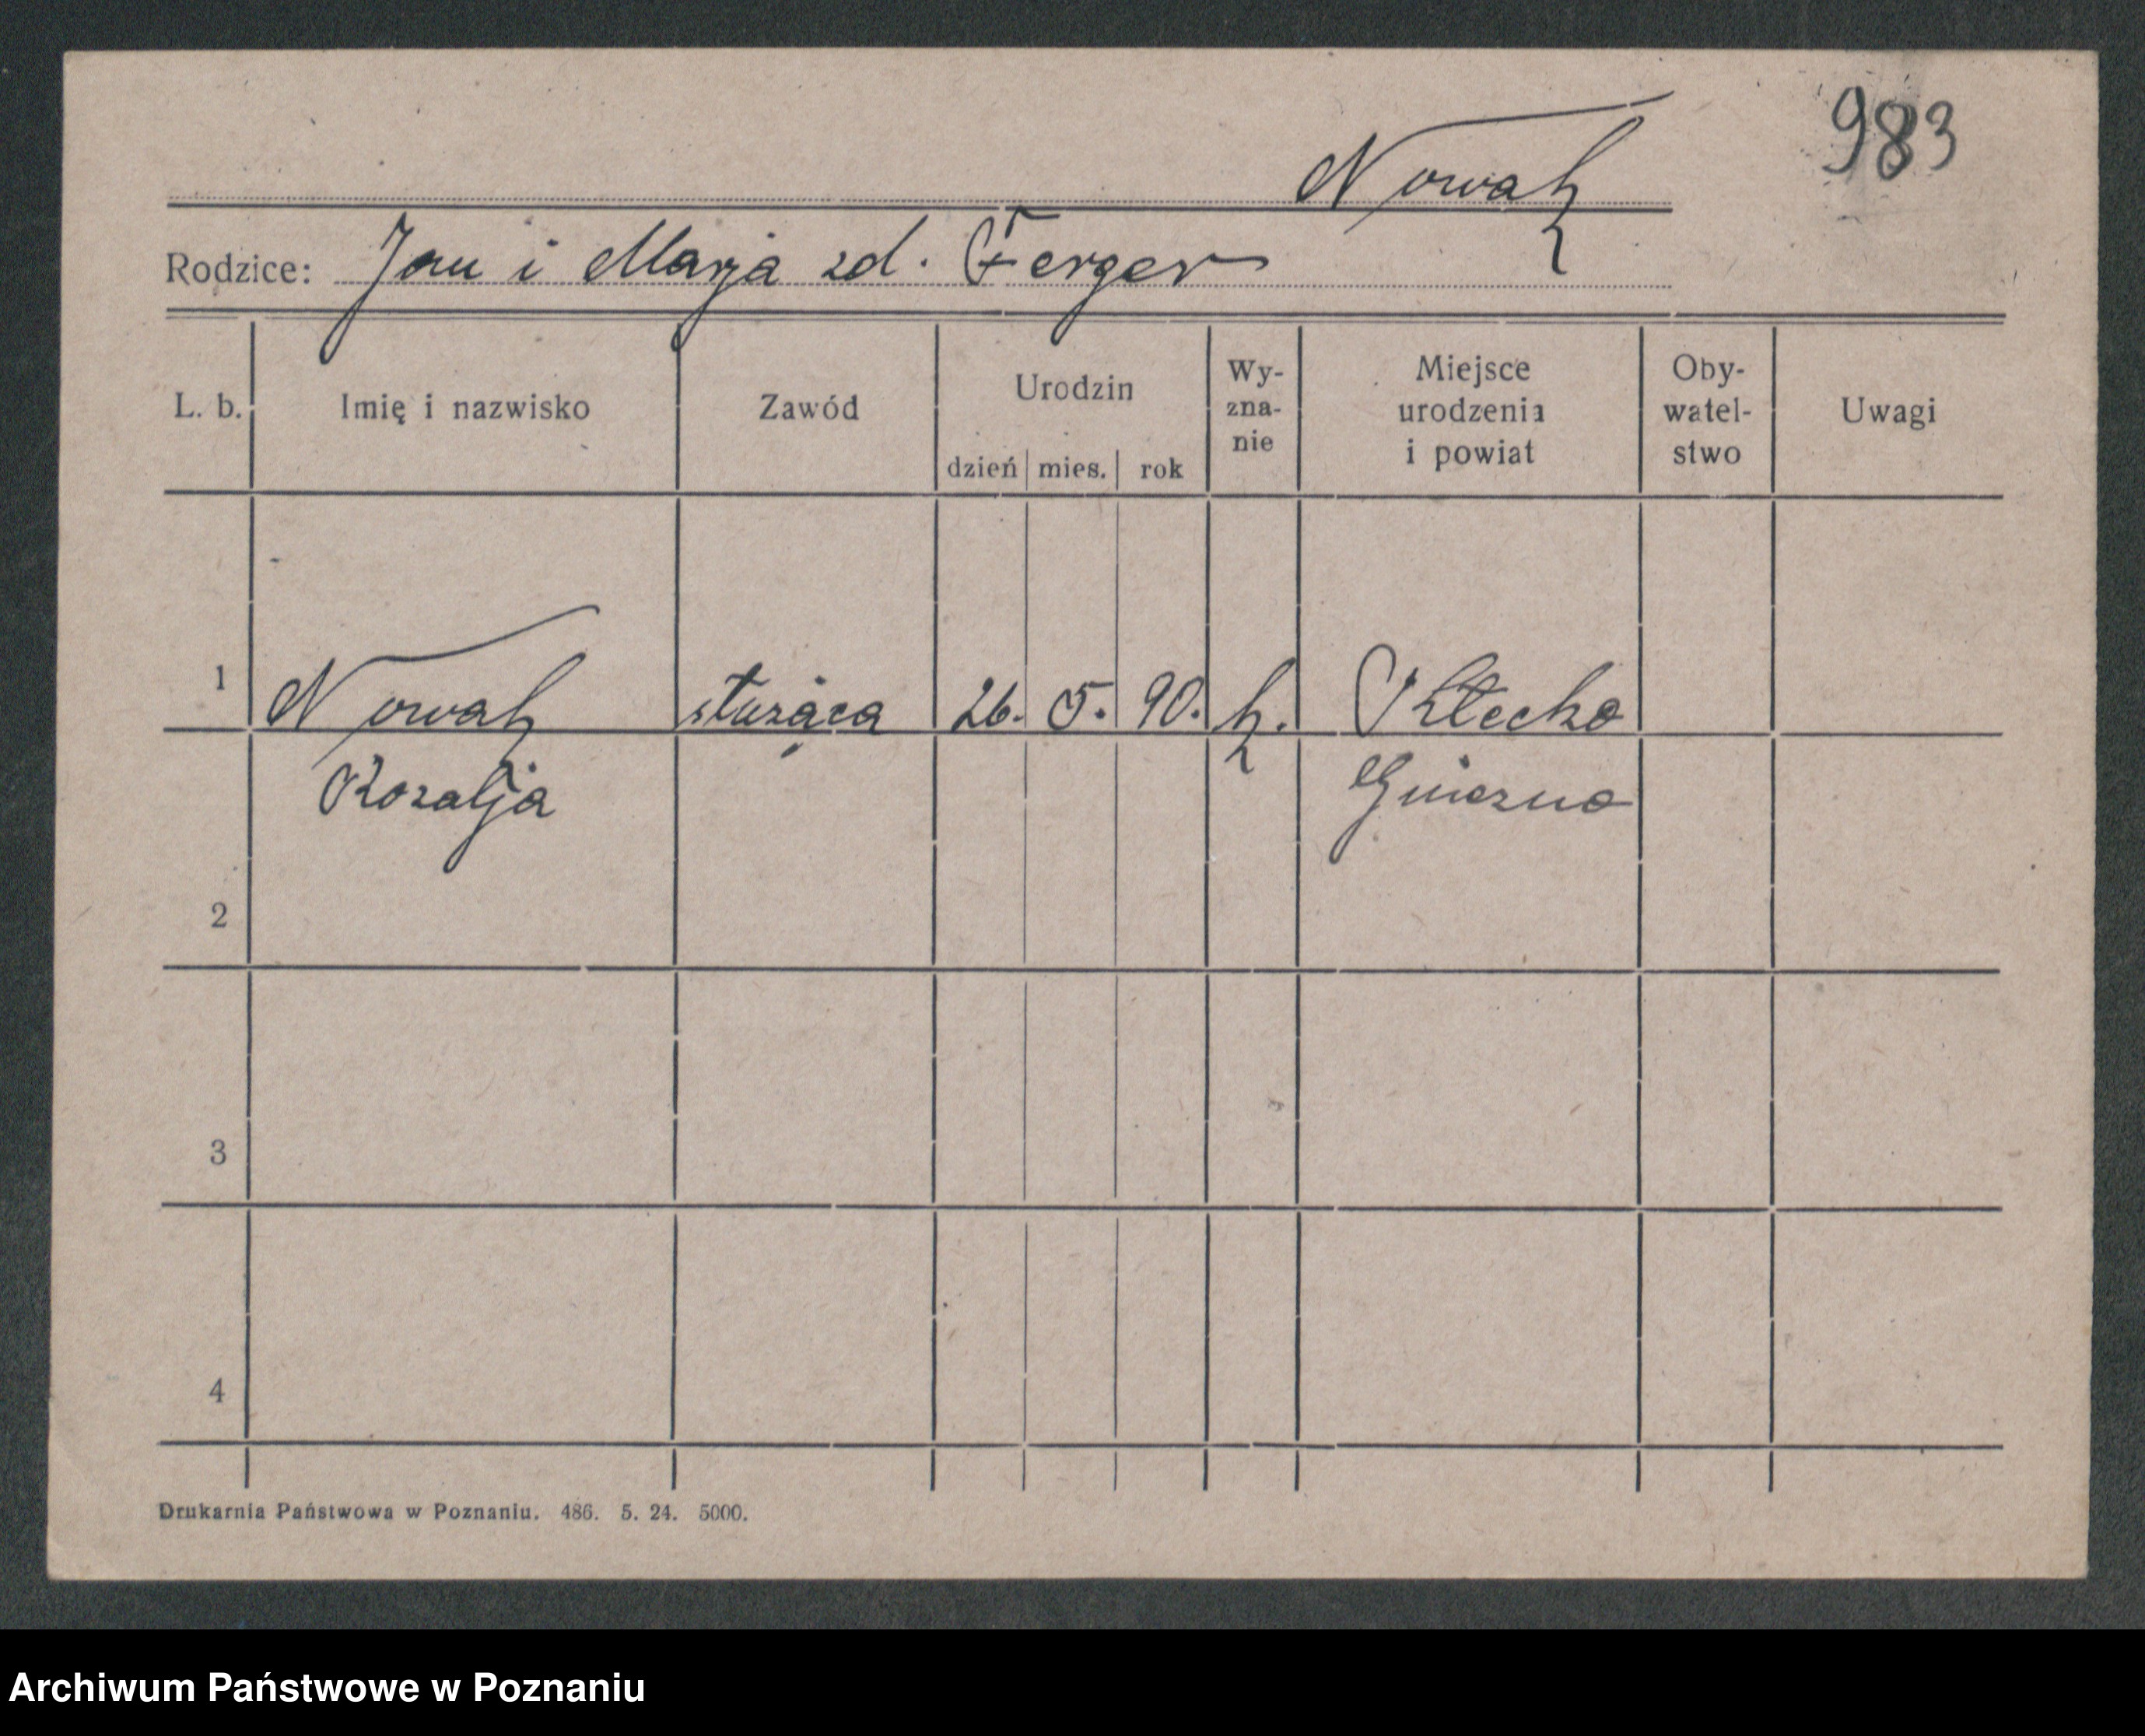 983
Nowak
Rodzice: Jan i Marja zd. Ferger
L. b. Imię i nazwisko Zawód Urodzin dzień mies. rok Wy-zna-nie Miejsce urodzenia i powiat Oby-watel-stwo Uwagi
1 Nowak służąca 26. 5. 90. k. Kłecko
Rozalja Gniezno
2
3
4
Drukarnia Państwowa w Poznaniu. 486. 5. 24. 5000.
Archiwum Państwowe w Poznaniu